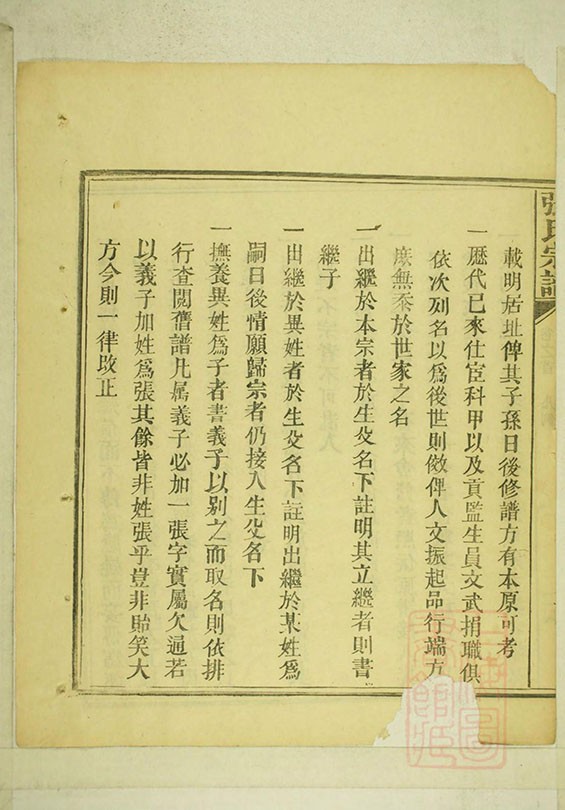 張氏宗譜
載明居址俾其子孫日後修譜方有本原可考
一歷代已來仕宦科甲以及貢監生員文武捐職俱
依次列名以爲後世則傚俾人文振起品行端方
庶無忝於世家之名
一出繼於本宗者於生父名下註明其立繼者則書
繼子
一出繼於異姓者於生父名下註明出繼於某姓爲
嗣日後情願歸宗者仍接入生父名下
一撫養異姓爲子者書義子以别之而取名則依排
行查閱舊譜凡属義子必加一張字實屬欠通若
以義子加姓爲張其餘皆非姓張乎豈非貽笑大
方今則一律改正